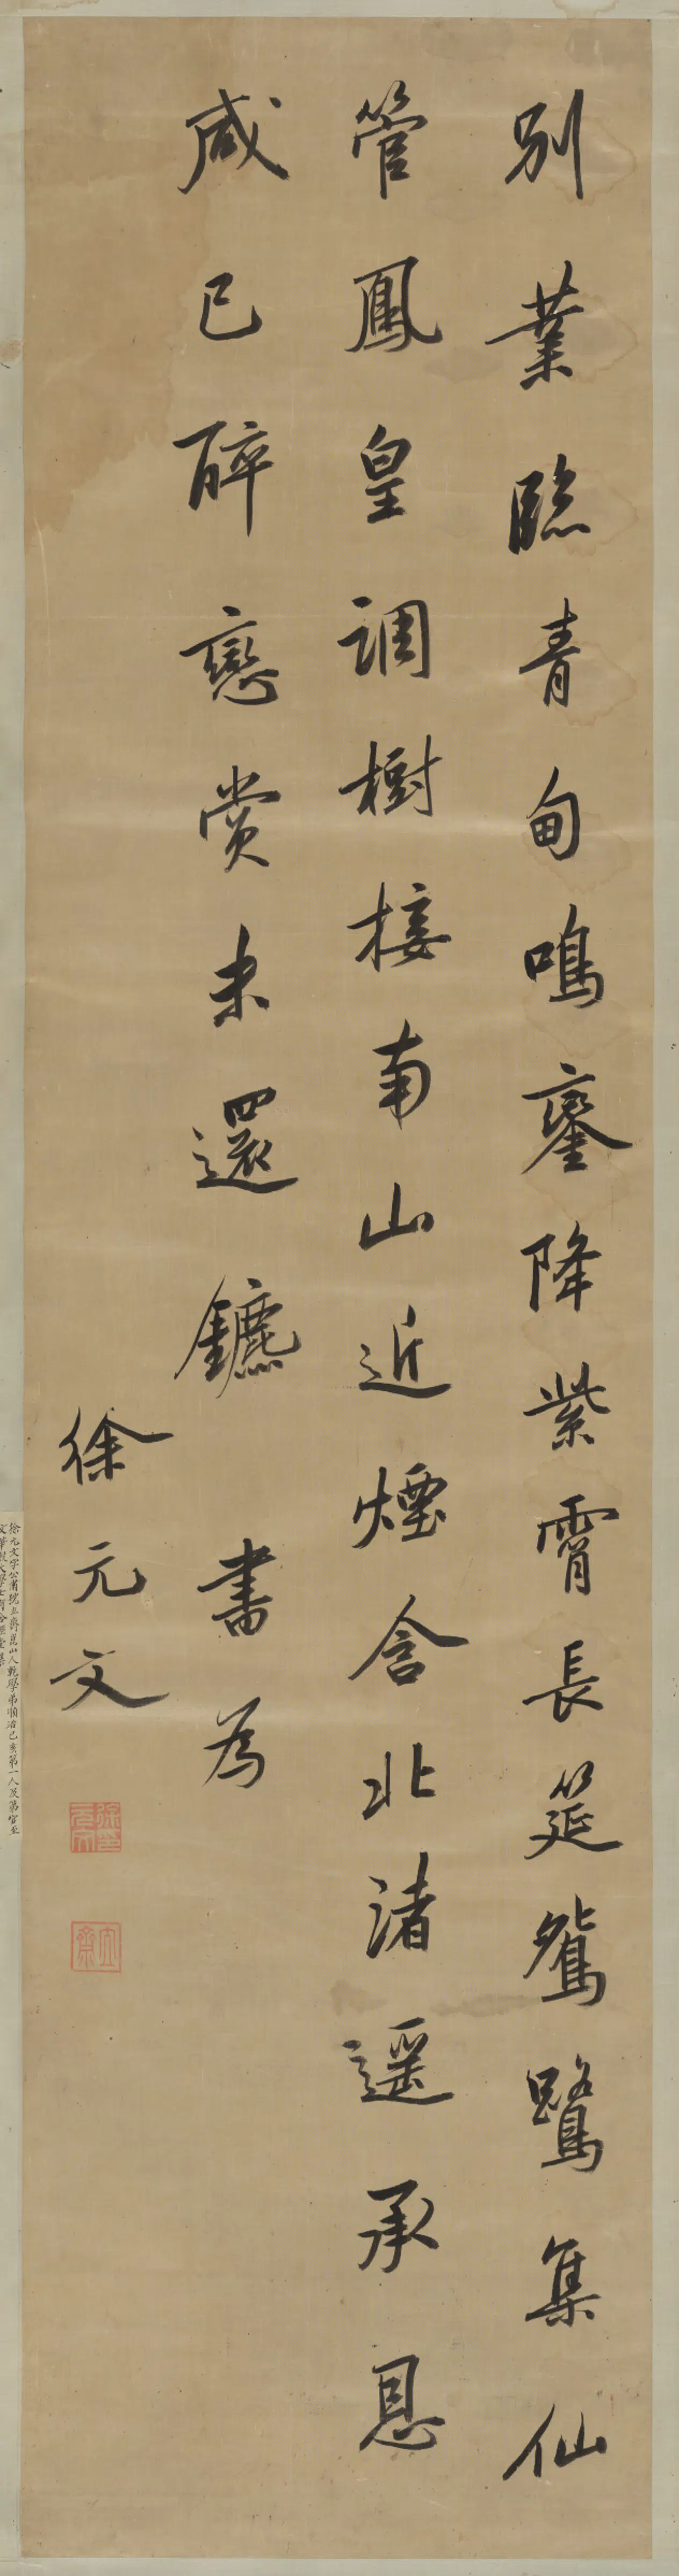 別業臨青甸鳴鑾降紫霄長筵鴛鷺集仙
管鳳皇調樹接南山近煙含北渚遥承恩
咸已醉戀賞未還鑣 書為
徐元文
徐元文字公肅號立齋崑山人乾學弟順治己亥第一人及第官至